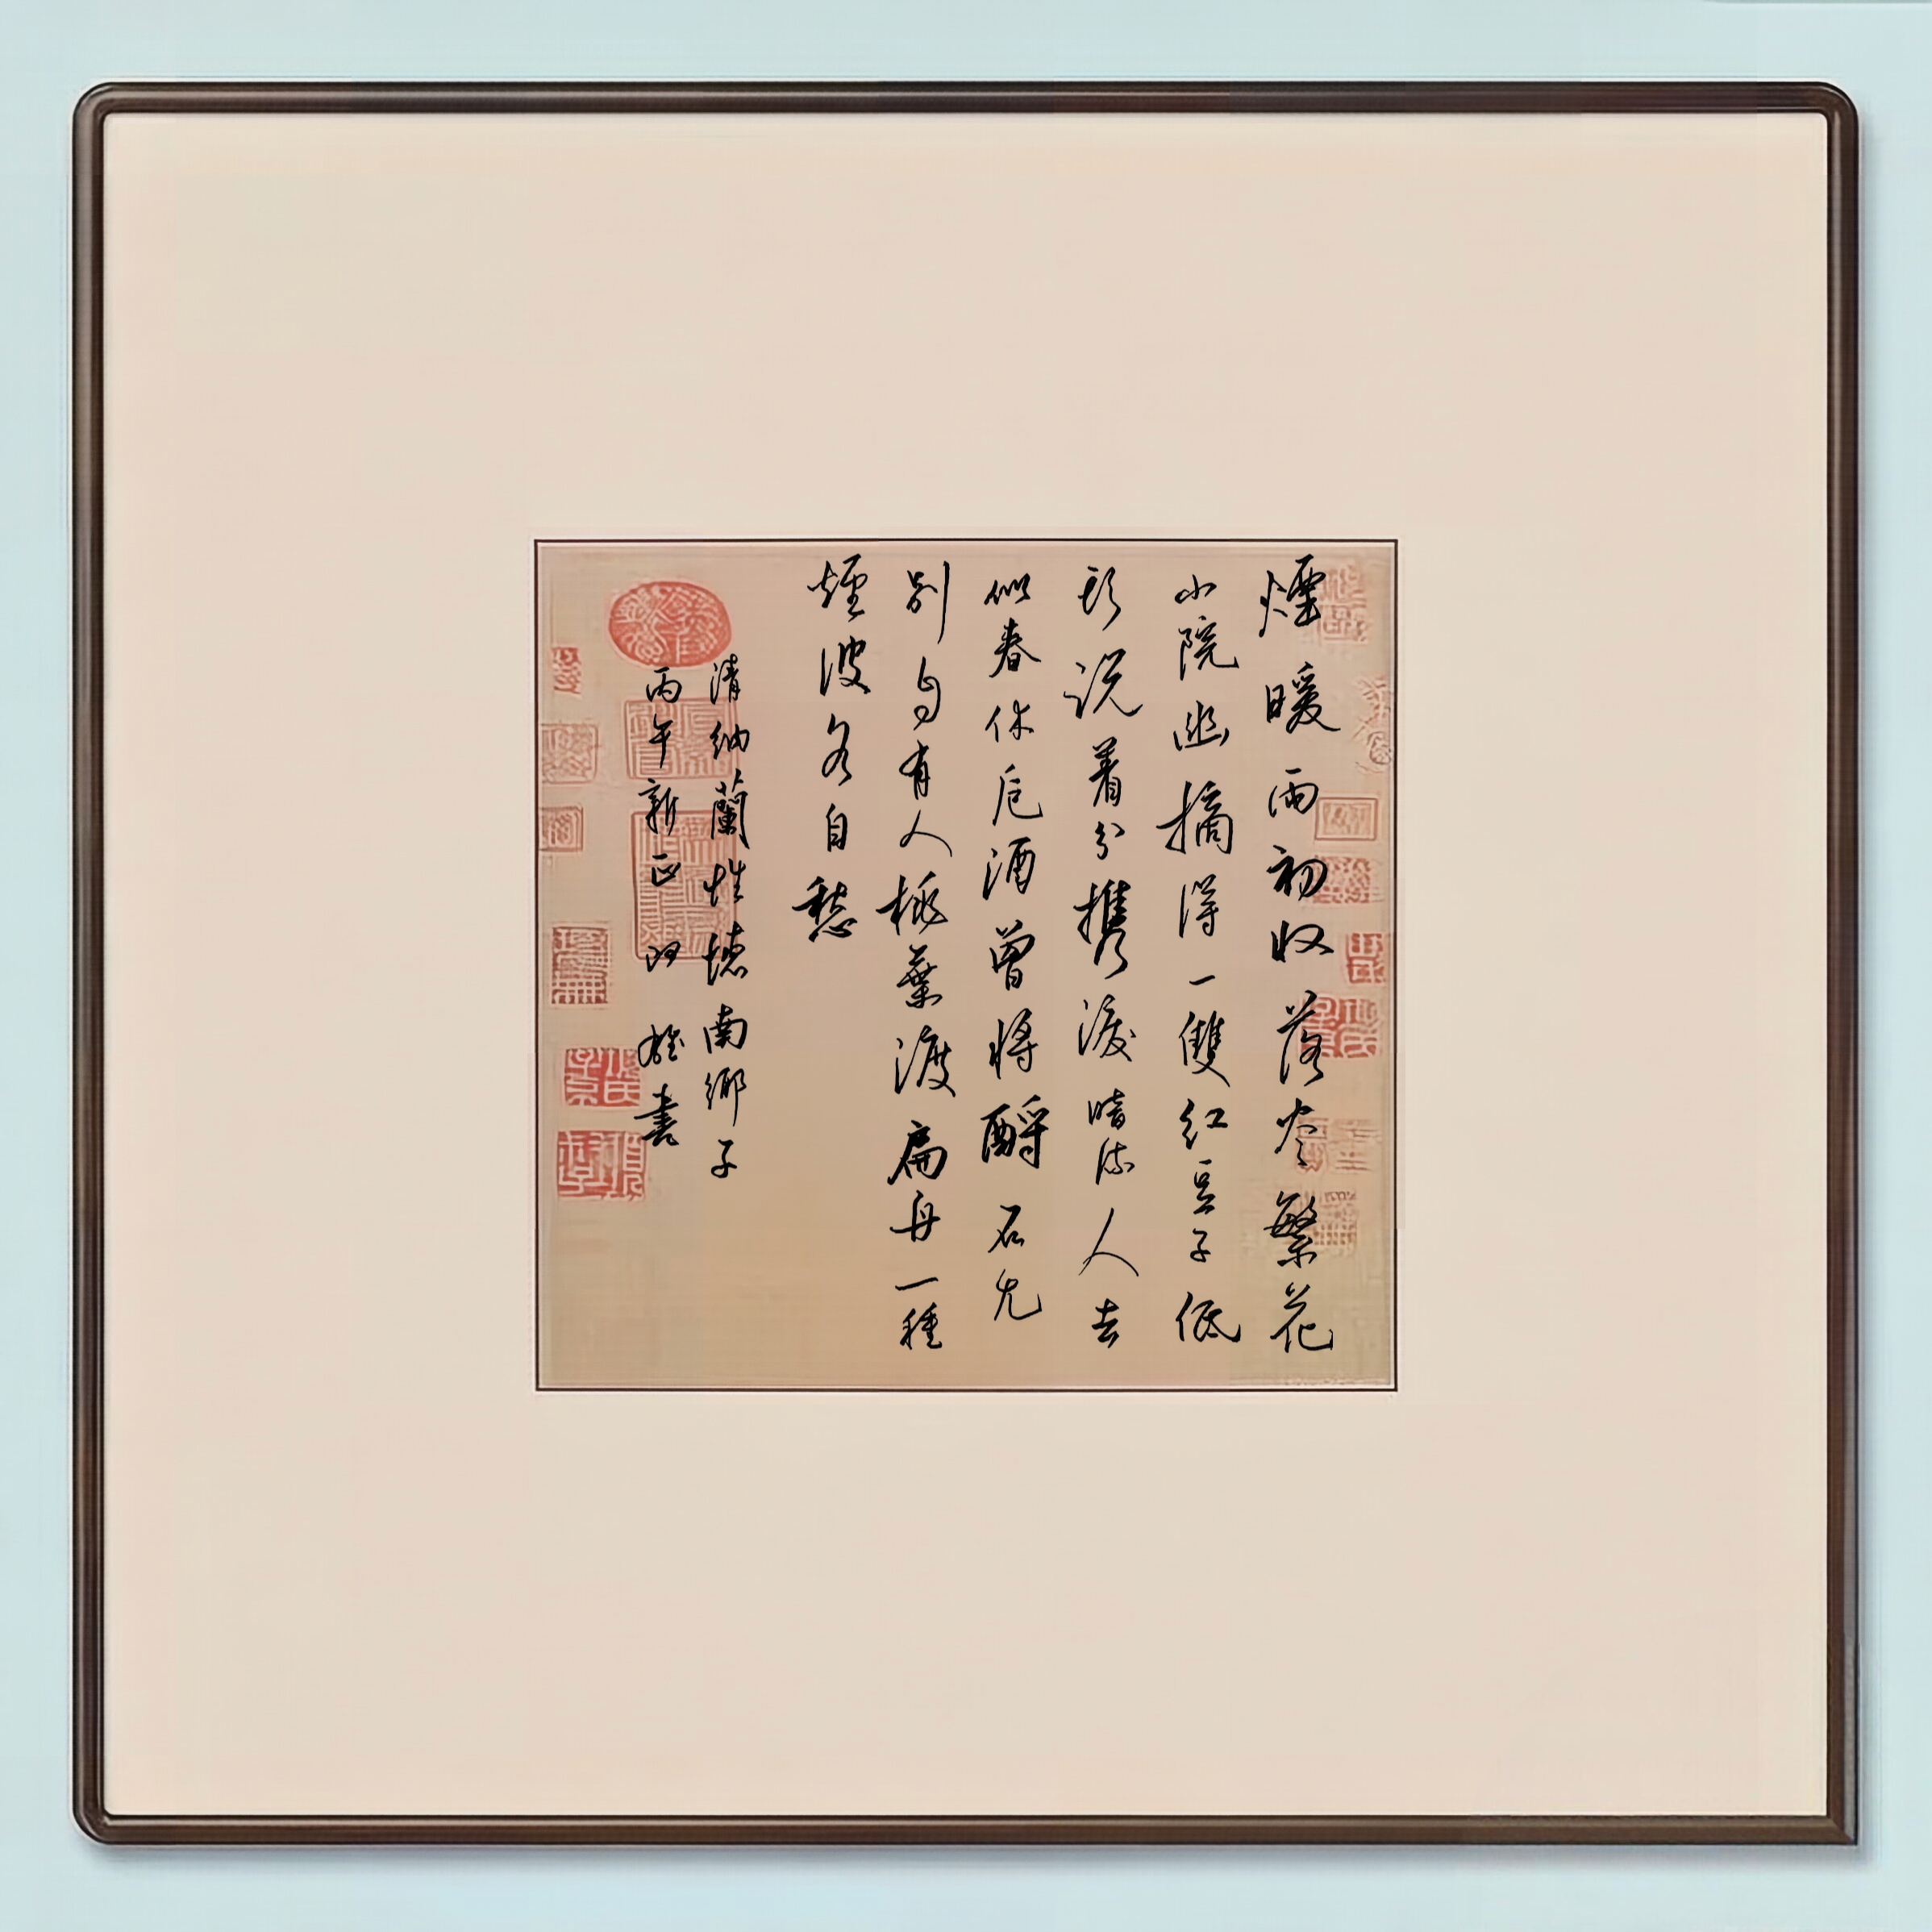 煙暖雨初収落尽繁花
小院幽摘得一雙紅豆子低
頭説着分携淚暗流人去
似春休卮酒曾將酹石尤
別自有人桃葉渡扁舟一種
煙波各自愁
清納蘭性德南鄉子
丙午新正 書